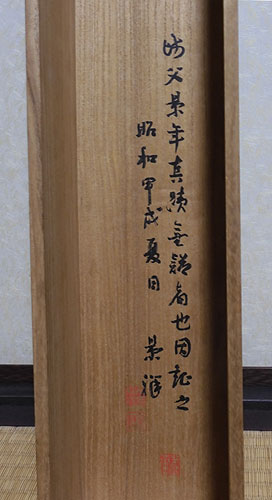 師父景年真蹟無誤者也因証之
昭和甲戌夏日
景輝